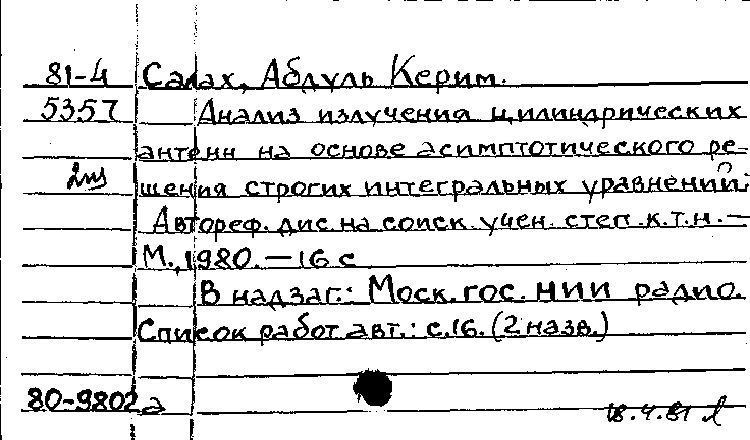 81-4 Салах, Абдуль Керим.
5357 Анализ излучения цилиндрических
антенн на основе асимптотического ре-
шения строгих интегральных уравнений:
Автореф. дис. на соиск. учен. степ. к.т.н. —
М., 1980. — 16 с
В надзаг.: Моск. гос. НИИ радио.
Список работ авт.: с.16. (2 назв.)
80-9802а
18.4.81